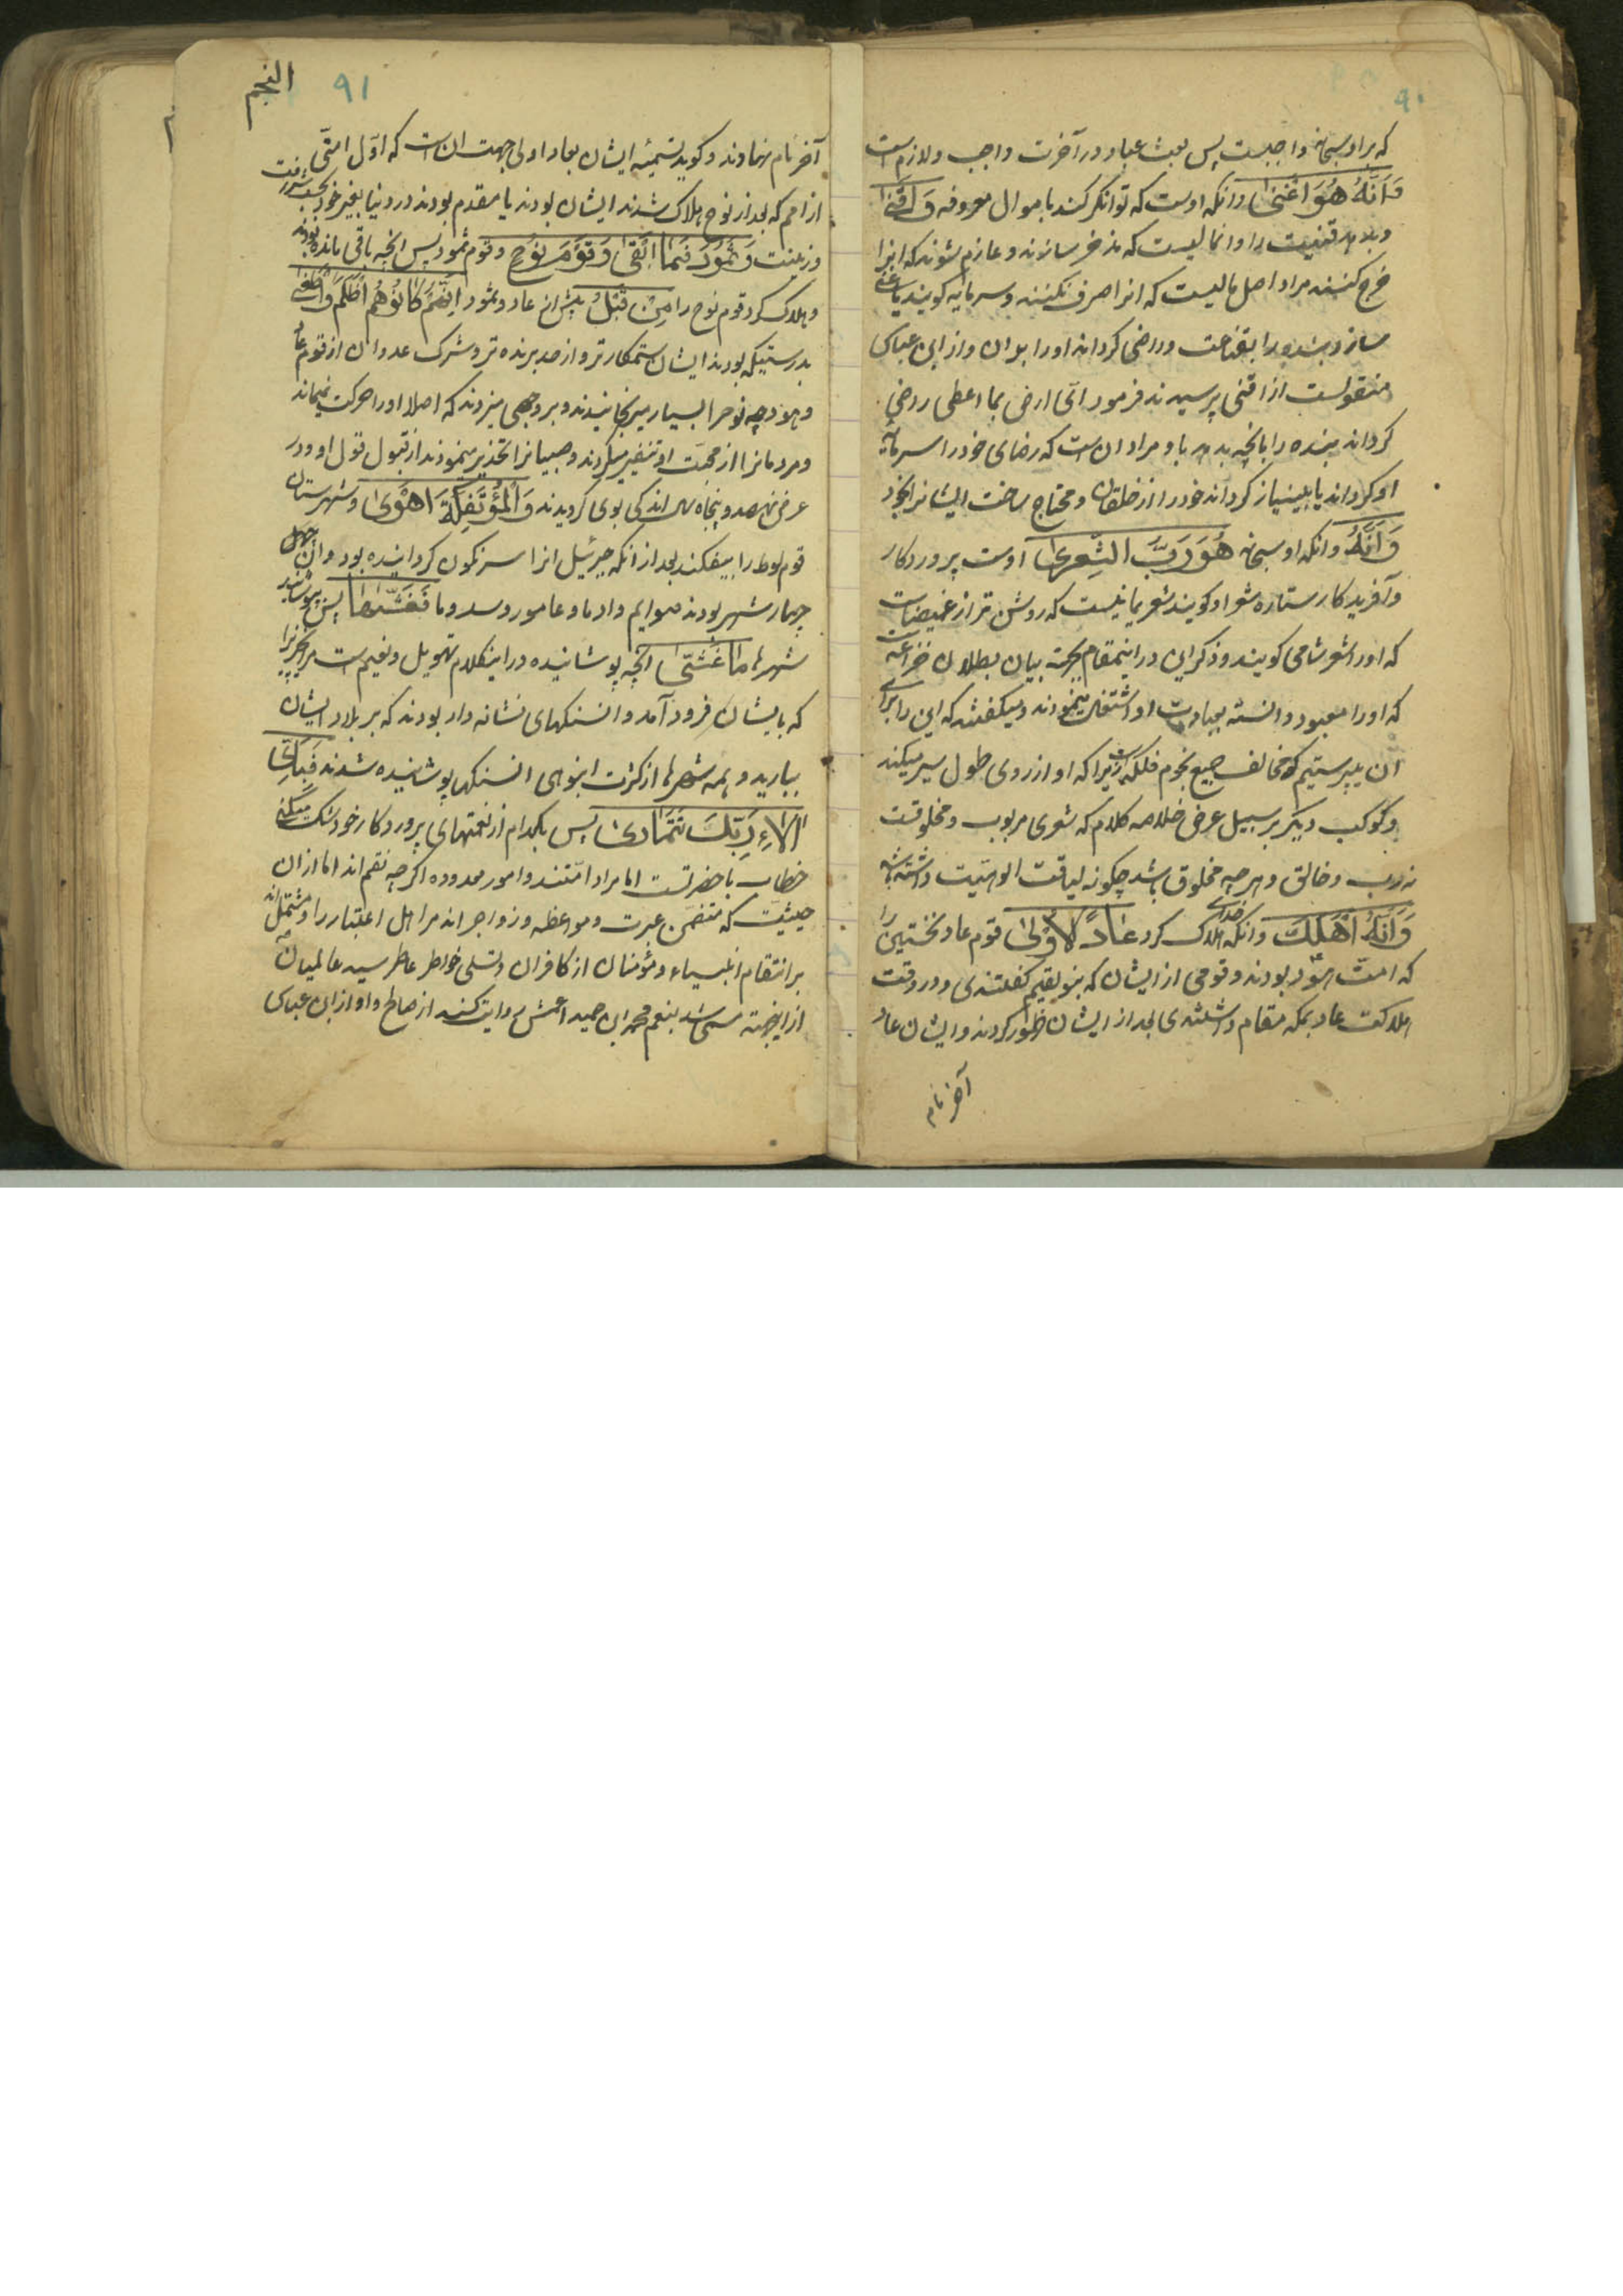 ۹۰
که بر او سبحانه واجبست پس بعث عباد در آخرت واجب و لازم است
وَاَنَّهُ هُوَ اَغْنىٰ و انکه اوست که توانکر کند باموال معروفه وَ اَقْنىٰ
و بدهد قنیت را و ان مالیست که بذخر رسانند و عازم شوند که انرا
خرج نکنند مراد اصل مالیست که انرا صرف نکنند و سرمایه کویند یا غنی
سازد بنده را بقناعت و راضی کرداند او را بدان و از ابن عباس
منقولست از اقنی پرسیدند فرمود ای ارضی بما اعطی راضی
کرداند بنده را بانچه بدهد باو مراد ان است که رضای خود را سرمایه
او کرداند یا بینیاز کرداند خود را از خلقان و محتاج ساخت ایشانرا بخود
وَاَنَّهُ و انکه او سبحانه هُوَ رَبُّ الشِّعْرىٰ اوست پروردکار
و آفریدکار ستاره شعرا و کویند شعر یمانیست که روشن تر از غمیصاست
که او را شعر شامی کویند و ذکر این در اینمقام بجهة بیان بطلان خزاعه است
که او را معبود دانسته بعبادت او اشتغال مینمودند و میکفتند که این را برای
ان میپرستیم که مخالف جمیع نجوم فلکست زیرا که او از روی طول سیر میکند
و کوکب دیکر بر سبیل عرض خلاصه کلام که شعری مربوب و مخلوقت
نه رب و خالق و هر چه مخلوق باشد چکونه لیاقت الوهیت داشته باشد
وَاَنَّهُ اَهْلَكَ و انکه خدای هلاک کرد عٰادًا الْاُوْلىٰ قوم عاد نخستین را
که امت هود بودند و قومی از ایشان که بنو لقیم کفتندی و در وقت
هلاکت عاد بمکه مقام داشتندی بعد از ایشان ظهور کردند و ایشان عاد
آخر نام
النجم
۹۱
آخر نام نهادند و کویند تسمیه ایشان بعاد اولی جهت ان است که اول امتی
از امم که بعد از نوح هلاک شدند ایشان بودند یا مقدم بودند در دنیا بغیر خود بحسب شرافت
و زینت وَ ثَمُوْدَ فَمٰا اَبْقىٰ وَ قَوْمَ نُوْحٍ و قوم ثمود پس انچه باقی مانده بودند
و هلاک کرد قوم نوح را مِنْ قَبْلُ پیش از عاد و ثمود اِنَّهُمْ كٰانُوْا هُمْ اَظْلَمَ وَ اَطْغىٰ
بدرستیکه بودند ایشان ستمکارتر و از حد برنده تر و شرک عدوان از قوم عاد
و هلاک چه نوح را بسیار میرنجانیدند و بر وجهی میزدند که اصلا او را حرکت نمیماند
و مردمانرا از محبت او تنفیر میکردند و صبیانرا تحذیر مینمودند از قبول قول او و در
عرض نهصد و پنجاه سال اندکی بوی کرویدند وَ الْمُؤْتَفِكَةَ اَهْوىٰ و شهرستان
قوم لوط را بیفکند بعد از انکه جبرئیل انرا سرنکون کردانیده بود و ان چهل
چهار شهر بودند صوایم و دادما و عامورو سدوما فَغَشّٰىهٰا پس بپوشانید
شهرها مٰا غَشّٰى انچه پوشانیده در اینکلام تهویل و تعمیم است مر انچیزیرا
که بایشان فرود آمد و ان سنکهای نشانه دار بودند که بر بلاد ایشان
ببارید و همه شهرها از کثرت انبوهی ان سنکها پوشانیده شدند فَبِاَىِّ
اٰلٰاءِ رَبِّكَ تَتَمٰارىٰ پس بکدام از نعمتهای پروردکار خود شک میکنی
خطاب باحضرتست اما مراد امتند و امور معدوده اکرچه نقم اند اما از ان
حیثیت که متضمن عبرت و مواعظه و زواجر اند مر اهل اعتبار را و مشتمل اند
بر انتقام انبیاء و مؤمنان از کافران و تسلی خواطر عاطر سید عالمیان
از اینجهة مسمی شد بنعم محمد ابن حمید اعمش روایت کند از صالح و او از ابن عباس